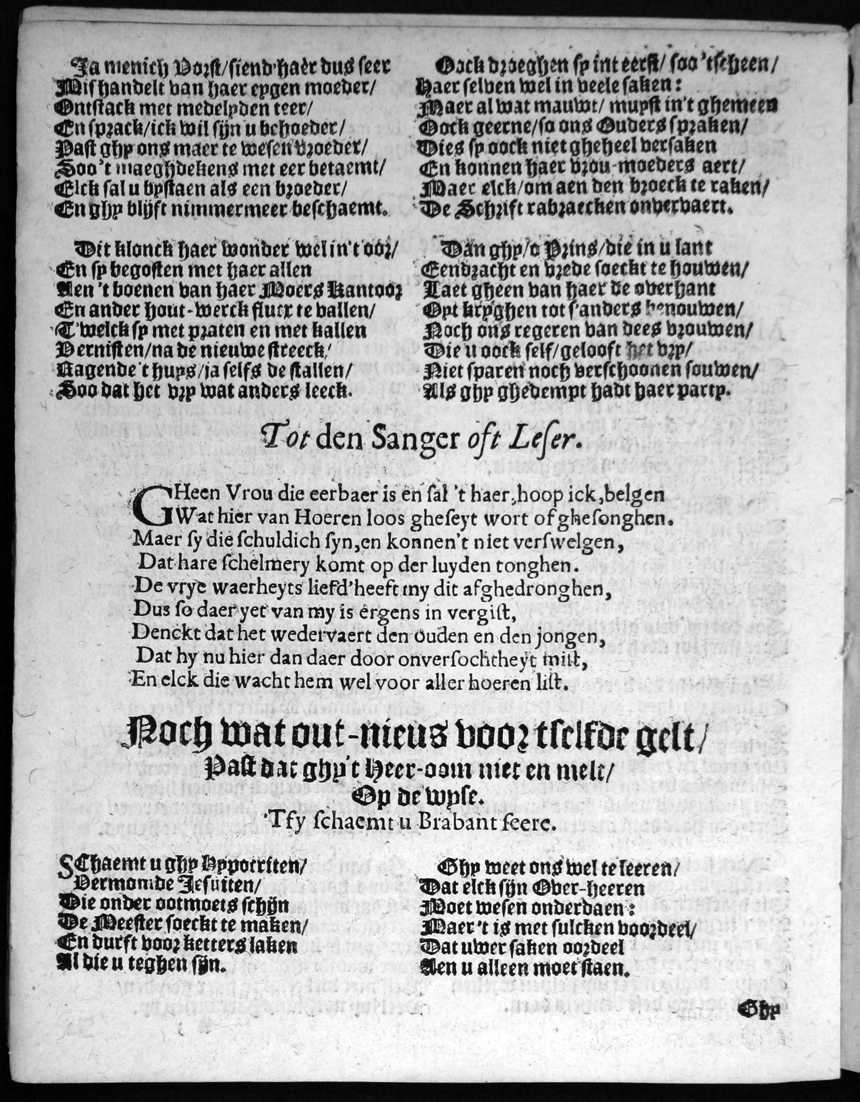 Ja menich Vorst/siend'haer dus seer
Mishandelt van haer eygen moeder/
Ontstack met medelyden teer/
En sprack/ick wil sijn u behoeder/
Past ghy ons maer te wesen vroeder/
Soo't maeghdekens met eer betaemt/
Elck sal u bystaen als een broeder/
En ghy blijft nimmermeer beschaemt.
Dit klonck haer wonder wel in't oor/
En sy begosten met haer allen
Aen 't boenen van haer Moers Kantoor
En ander hout-werck flucx te vallen/
T'welck sy met praten en met kallen
Vernisten/na de nieuwe streeck/
Nagende 't huys/ja selfs de stallen/
Soo dat het vry wat anders leeck.
Oock droeghen sy int eerst/soo 'tscheen/
Haer selven wel in veele saken:
Maer al wat mauwt/muyst in't ghemeen
Oock geerne/so ons Ouders spraken/
Dies sy oock niet gheheel versaken
En konnen haer vrou-moeders aert/
Maer elck/om aen den broeck te raken/
De Schrift rabraecken onvervaert.
Dan ghy/o Prins/die in u lant
Eendracht en vrede soeckt te houwen/
Laet gheen van haer de overhant
Oyt kryghen tot s'anders benouwen/
Noch ons regeren van dees vrouwen/
Die u oock self/gelooft het vry/
Niet sparen noch verschoonen souwen/
Als ghy ghedempt hadt haer party.
Tot den Sanger oft Leser.
GHeen Vrou die eerbaer is en sal 't haer, hoop ick, belgen
Wat hier van Hoeren loos gheseyt wort of ghesonghen.
Maer sy die schuldich syn, en konnen't niet verswelgen,
Dat hare schelmery komt op der luyden tonghen.
De vrye waerheyts liefd' heeft my dit afghedronghen,
Dus so daer yet van my is ergens in vergist,
Denckt dat het wedervaert den ouden en den jongen,
Dat hy nu hier dan daer door onversochtheyt mist,
En elck die wacht hem wel voor aller hoeren list.
Noch wat out-nieus voor tselfde gelt/
Past dat ghy't Heer-oom niet en melt/
Op de wyse.
'Tsy schaemt u Brabant seere.
SChaemt u ghy Hypocriten/
Vermomde Jesuiten/
Die onder ootmoets schijn
De Meester soeckt te maken/
En durft voor ketters laken
Al die u teghen sijn.
Ghy weet ons wel te leeren/
Dat elck sijn Over-heeren
Moet wesen onderdaen:
Maer 't is met sulcken voordeel/
Dat uwer saken oordeel
Aen u alleen moet staen.
Ghy